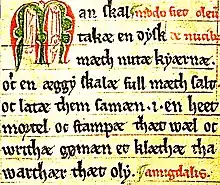 Man skal modo fiet oleū
takæ en dysk de nucib
mæth nutæ kyærnæ.
oc en æggy skalæ full mæth salt
oc latæ them samæn. i. en heet
mortel oc stampæ thæt wæl oc
writhæ gømæn et klæthæ tha
warthær thæt oly. amigdalis.